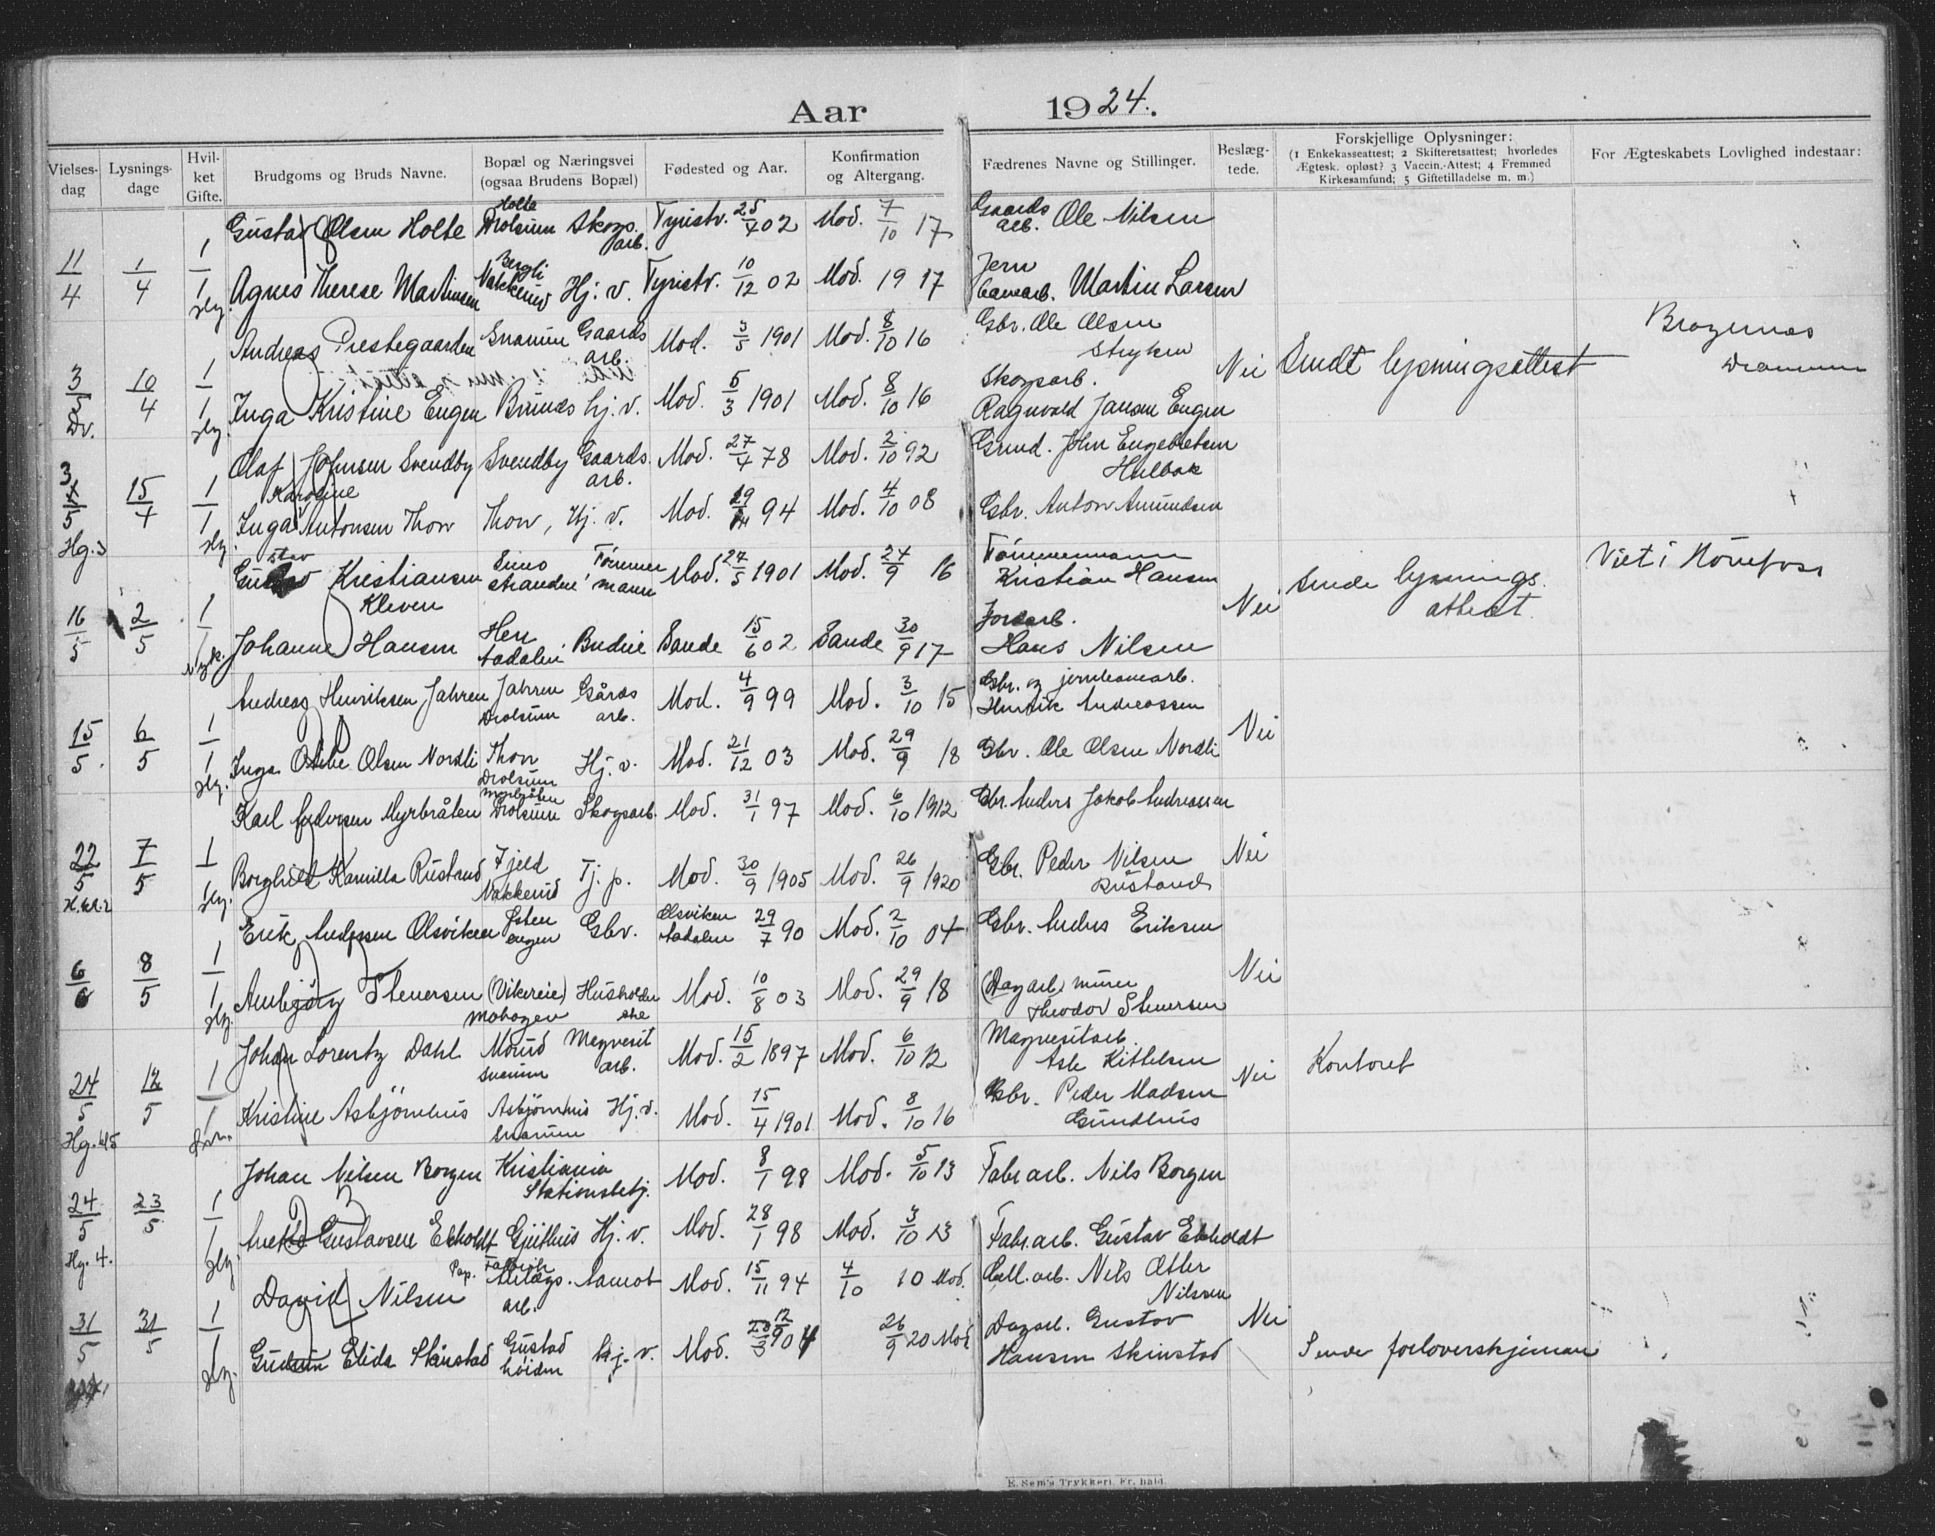 Aar 1924.
Vielses-dag
Lysnings-dage
Hvil-ket Gifte.
Brudgoms og Bruds Navne.
Bopæl og Næringsvei (ogsaa Brudens Bopæl)
Fødested og Aar.
Konfirmation og Altergang.
Fædrenes Navne og Stillinger.
Beslæg-tede.
Forskjellige Oplysninger: (1 Enkekasseattest; 2 Skifteretsattest; hvorledes Ægtesk. opløst? 3 Vaccin.-Attest; 4 Fremmed Kirkesamfund; 5 Giftetilladelse m. m.)
For Ægteskabets Lovlighed indestaar:
1 Gustav Olsen Holte Holte Drolsum Skogs. arb. Tyristr. 25/4 02 Mod. 7/10 17 Gaards arb. Ole Nilsen
11/4 1/4 1 Agnes Therese Martinsen Bergli Vakkerud Hj. v. Tyristr. 10/12 02 Mod. 19 17 Jern banearb. Martin Larsen
1 Andreas Prestegaarden Snarum Gaards arb. Mod. 3/5 1901 Mod. 8/10 16 Gbr. Ole Olsen Stryken Nei Sendt lysningsattest Bragernes Drammen
3/5 Dr. 10/4 1 Inga Kristine Engen hj. v. Mod. 5/3 1901 Mod. 8/10 16 Skogsarb. Ragnvald Jansen Engen
1 Olaf Johnsen Svendby Svendby Gaards. arb. Mod. 27/4 78 Mod. 2/10 92 Grund. John Engebretsen Hulbak
3 15/4 1 Inga Karoline Antonsen Thon Thon, Hj. v. Mod. 29 94 Mod. 4/10 08 Gbr. Anton Amundsen
Hg. 3
1 Gustav Kristiansen Kleven Simo stranden Tømmer mann Mod. 27/5 1901 Mod. 24/9 16 Tømmermann Kristian Hansen Nei Sende lysnings. attest. Viet i Hønefoss
16/5 2/5 1 Johanne Hansen Budeie Sande 15/6 02 Sande 30/9 17 Jordarb. Hans Nilsen
1 Andreas Henriksen Jahren Jahren Drolsum Gårds arb. Mod. 4/9 99 Mod. 3/10 15 Gbr. og jernbanearb. Henrik Andreassen Nei
15/5 6/5 1 Inga Olsen Nordli Thon Drolsum Hj. v. Mod. 21/12 03 Mod. 29/9 18 Gbr. Ole Olsen Nordli
1 Karl Andersen Myrbråten Myrbråten Drolsum Skogsarb. Mod. 31/1 97 Mod. 6/10 1912 Gbr. Anders Jakob Andreassen Nei
22/5 7/5 1 Borghild Kamilla Rustand Fjeld Vakkerud Tj. p. Mod. 30/9 1905 Mod. 26/9 1920 Gbr. Peder Nilsen Rustand
1 Erik Andersen Olsviken engen Gbr. Olsviken 29/7 90 Mod. 2/10 04 Gbr. Anders Eriksen Nei
6/6 8/5 1 Stenersen (Vikereie) Husholder ske Mod. 10/8 03 Mod. 29/9 18 (Dagarb.) murer Theodor Stenersen
1 Johan Lorentz Dahl Morud Snarum Magnesit arb. Mod. 15/2 1897 Mod. 6/10 12 Magnesitarb. Asle Kittelsen Nei Kontoret
24/5 12/5 1 Kristine Asbjørnhus Asbjørnhus Snarum Hj. v. Mod. 15/4 1901 Mod. 8/10 16 Gbr. Peder Madsen Gundhus
Johan Nilsen Borgen Kristiania Stationsbetj. Mod. 8/1 98 Mod. 5/10 13 Fabr. arb. Nils Borgen
24/5 23/5 1 Gustavsen Ekholdt Gjuthus Hj. v. Mod. 28/1 98 Mod. 3/10 13 Fabr. arb. Gustav Ekholdt
Hg. 4.
1 David Nilsen Pap. Fabrik Anlægs. arb. Aamot Mod. 15/11 94 4/10 10 Mod. Cell. arb. Nils Otter Nilssen Nei
31/5 31/5 1 Gudrun Elida Skinstad Gustad høiden hj. v. Mod. 904 26/9 20 Mod. Dagarb. Gustav Hansen Skinstad Sende forloverskjeman
E. Sem's Trykkeri, Fr. hald.